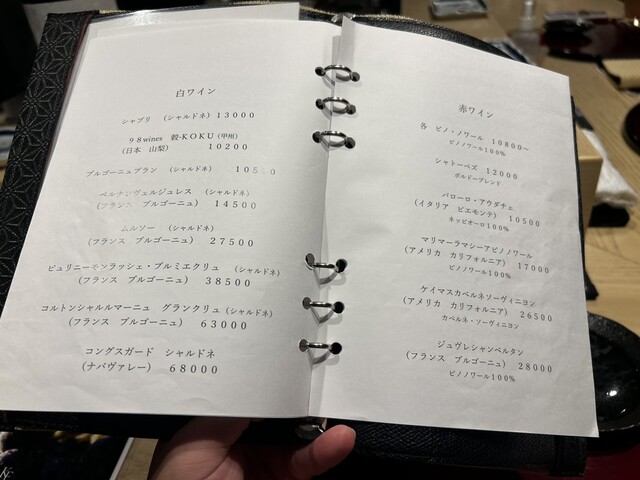 白ワイン
シャブリ (シャルドネ) 13000
98wines 穀-KOKU (甲州)
(日本 山梨) 10200
ブルゴーニュブラン (シャルドネ)
ベルナンヴェルジュレス (シャルドネ)
(フランス ブルゴーニュ) 14500
ムルソー (シャルドネ)
(フランス ブルゴーニュ) 27500
ピュリニーモンラッシェ・プルミエクリュ (シャルドネ)
(フランス ブルゴーニュ) 38500
コルトンシャルルマーニュ グランクリュ (シャルドネ)
(フランス ブルゴーニュ) 63000
コングスガード シャルドネ
(ナパヴァレー) 68000
赤ワイン
各 ピノ・ノワール 10800~
ピノノワール100%
シャトーペズ 12000
ボルドーブレンド
バローロ・アウダチェ
(イタリア ピエモンテ) 10500
ネッビオーロ100%
マリマーラマシーアピノノワール
(アメリカ カリフォルニア) 17000
ピノノワール100%
ケイマスカベルネソーヴィニヨン
(アメリカ カリフォルニア) 26500
カベルネ・ソーヴィニヨン
ジュヴレシャンベルタン
(フランス ブルゴーニュ) 28000
ピノノワール100%